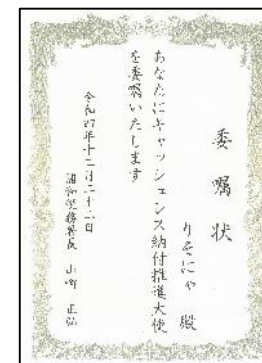 委嘱状
りそにゃ 殿
あなたにキャッシュレス納付推進大使
を委嘱いたします
令和 年十二月二十二日
浦和税務署長 山